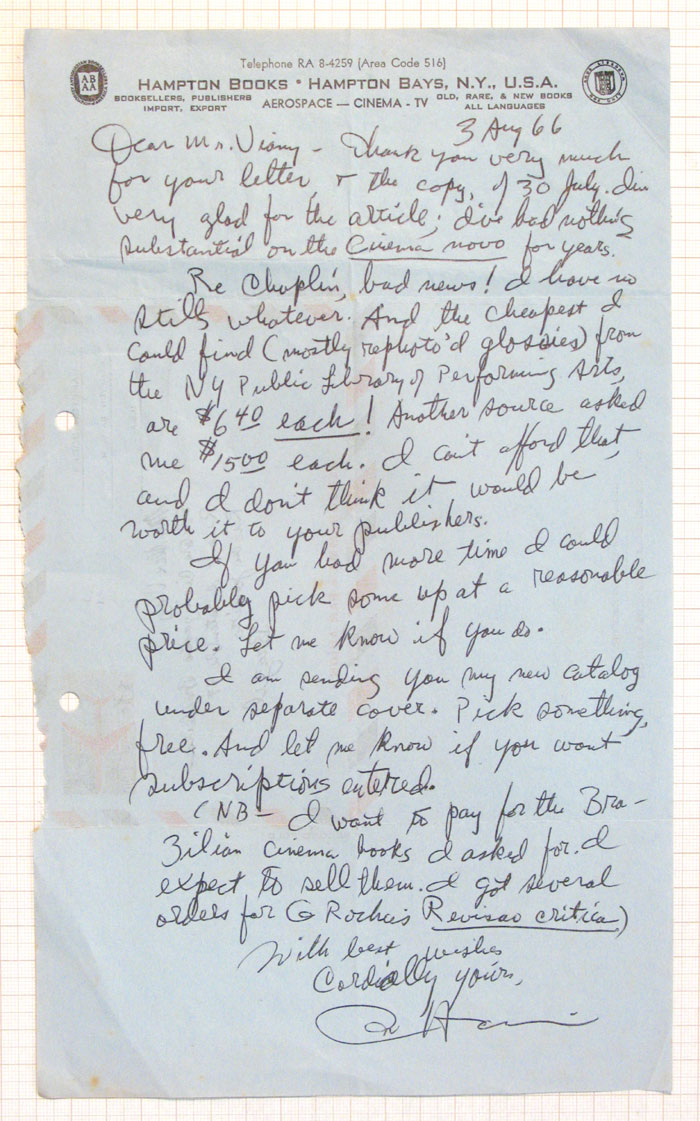 Telephone RA 8-4259 (Area Code 516)
ABAA
HAMPTON BOOKS • HAMPTON BAYS, N.Y., U.S.A.
BOOKSELLERS, PUBLISHERS
IMPORT, EXPORT
AEROSPACE — CINEMA - TV
OLD, RARE, & NEW BOOKS
ALL LANGUAGES
3 Aug 66
Dear Mr. Viany - Thank you very much
for your letter, + the copy, of 30 July. I'm
very glad for the article; I've had nothing
substantial on the Cinema novo for years.
Re Chaplin, bad news! I have no
stills whatever. And the cheapest I
could find (mostly rephoto'd glossies) from
the NY Public Library of Performing Arts,
are $6.40 each! Another source asked
me $15.00 each. I can't afford that,
and I don't think it would be
worth it to your publishers.
If you had more time I could
probably pick some up at a reasonable
price. Let me know if you do.
I am sending you my new catalog
under separate cover. Pick something,
free. And let me know if you want
subscriptions entered.
(NB - I want to pay for the Bra-
zilian cinema books I asked for. I
expect to sell them. I got several
orders for G Rocha's Revisao critica)
With best wishes
Cordially yours,